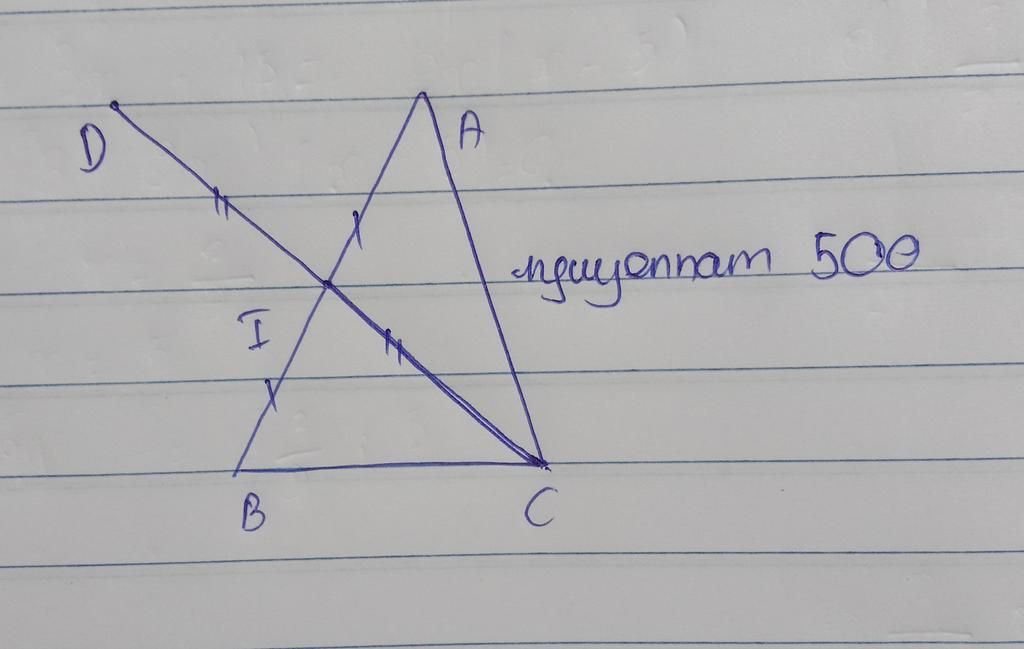 D
A
nguyennam 500
I
B
C